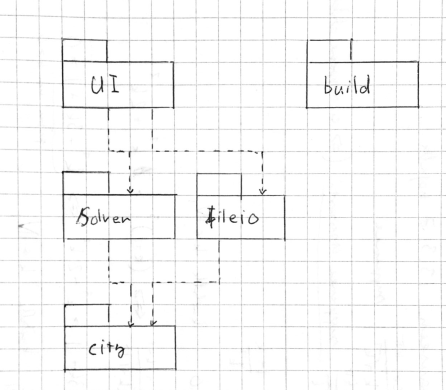 UI
build
Solver
fileio
city